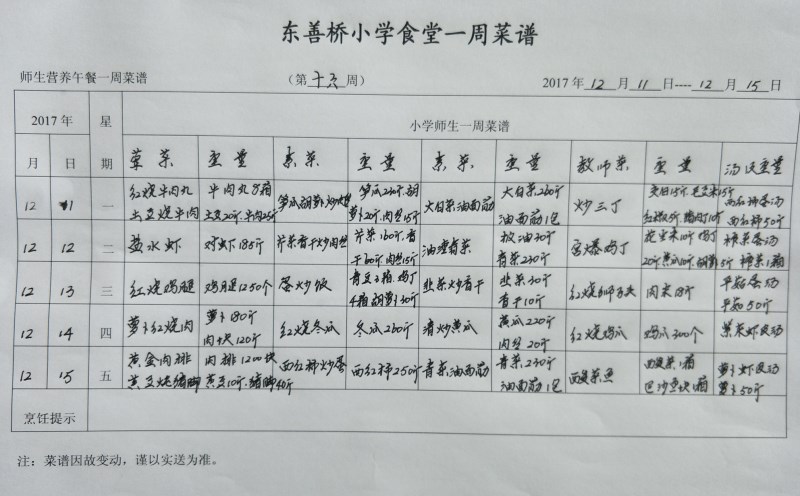 东善桥小学食堂一周菜谱
师生营养午餐一周菜谱 （第十六周） 2017年12月11日----12月15日
2017年 星期 小学师生一周菜谱
月 日 荤菜 重量 素菜 重量 素菜 重量 教师菜 重量 汤及重量
12 11 一 红烧牛肉丸 牛肉丸8箱 大白菜油面筋 大白菜260斤 炒三丁
土豆烧牛肉 油面筋1包 西红柿50斤
12 12 二 盐水虾 对虾185斤 芹菜香干炒肉丝 芹菜160斤 香干60斤 肉丝15斤 油埋青菜 青菜230斤 宫爆鸡丁
12 13 三 红烧鸡腿 鸡腿1250个 蛋炒饭 韭菜炒香干 韭菜30斤 香干10斤 肉末18斤 平菇蛋汤
平菇50斤
12 14 四 萝卜红烧肉 萝卜180斤 肉块120斤 红烧冬瓜 冬瓜260斤 青炒黄瓜 黄瓜220斤 肉丝20斤 红烧鸡爪 鸡爪300个 紫菜虾皮汤
12 15 五 黄金肉排 肉排1200块 西红柿炒蛋 西红柿250斤 青菜油面筋 青菜230斤 酸菜鱼 酸菜1箱 萝卜虾皮汤
黄豆炖猪脚 黄豆10斤.猪脚40斤 油面筋1包 巴沙鱼块1箱 萝卜50斤
烹饪提示
注：菜谱因故变动，谨以实送为准。